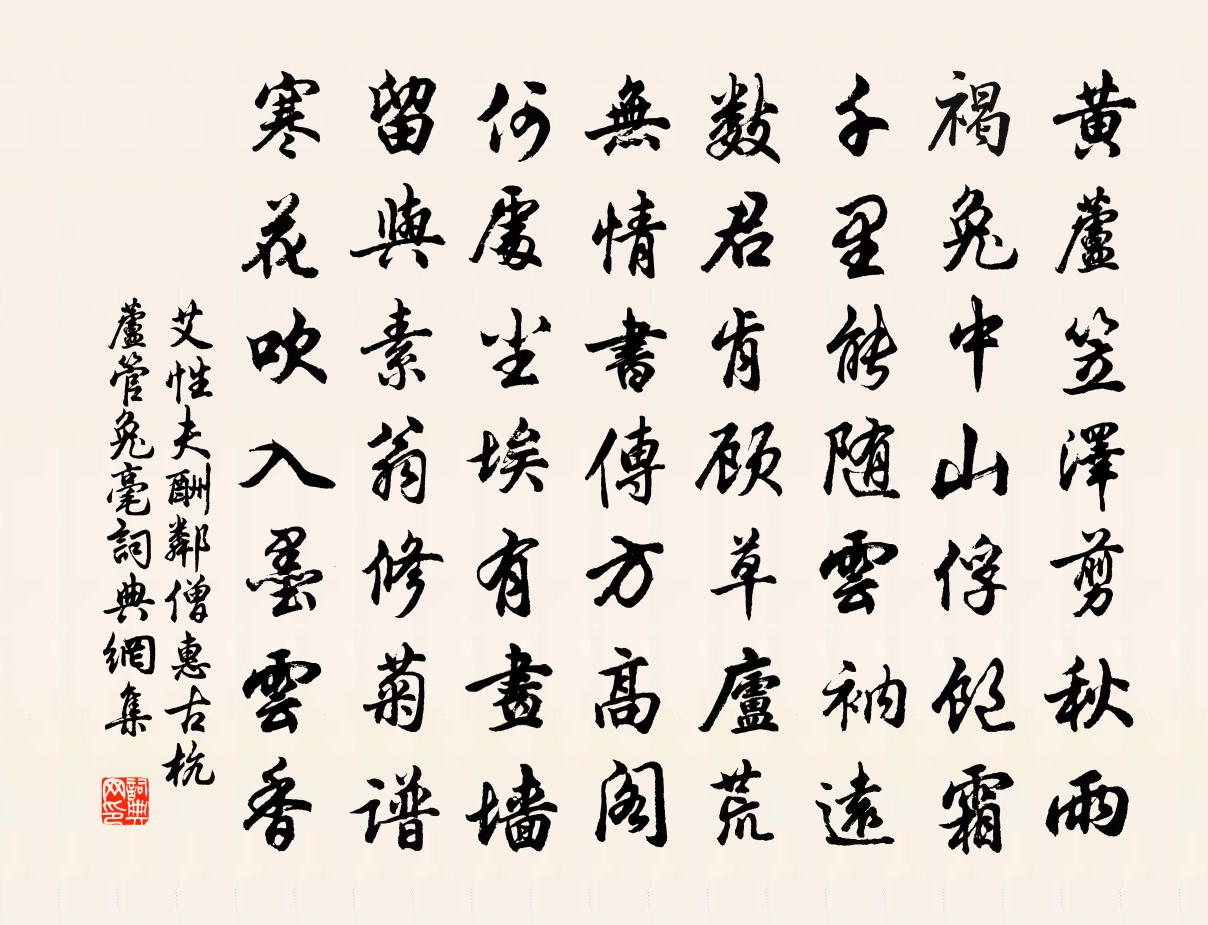 黄蘆笠澤剪秋雨
褐兔中山俘飽霜
千里能随雲衲遠
数君肯顾草廬荒
無情書傳方高阁
何處尘埃有畫墙
留與素翁修菊谱
寒花吹入墨雲香
艾性夫酬鄰僧惠古杭
蘆管兔毫詞典網集
詞典网印